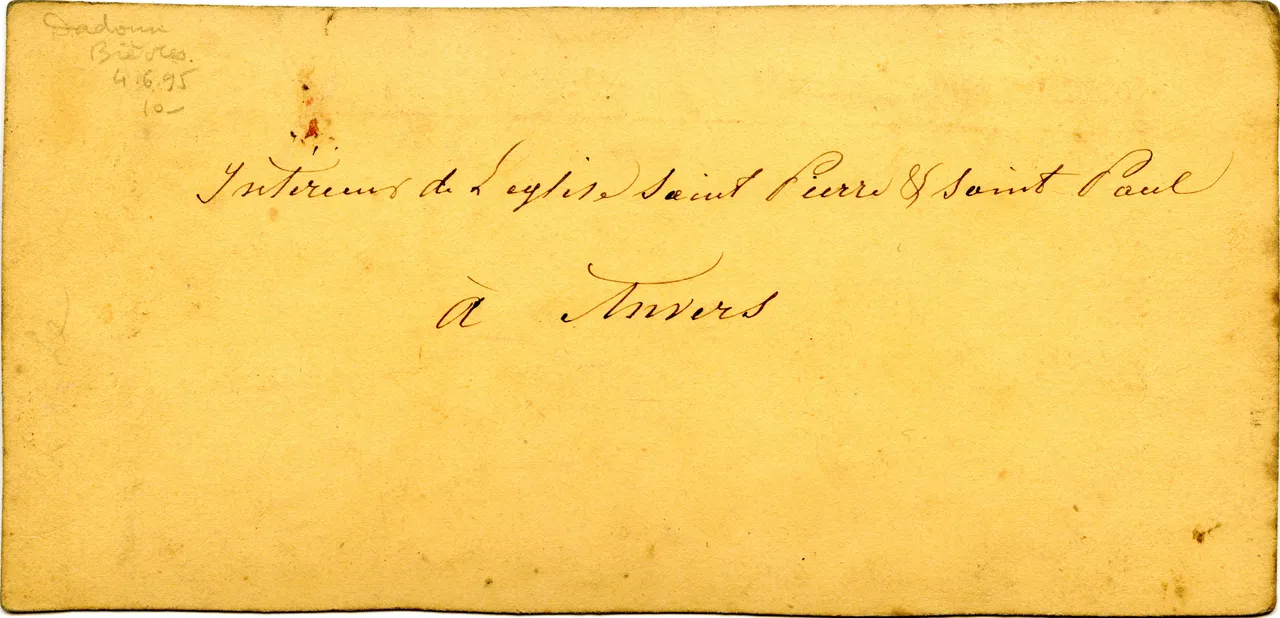 Dadoun
Bièvres.
4.6.95
10-
Intérieur de L'eglise Saint Pierre & Saint Paul
à Anvers